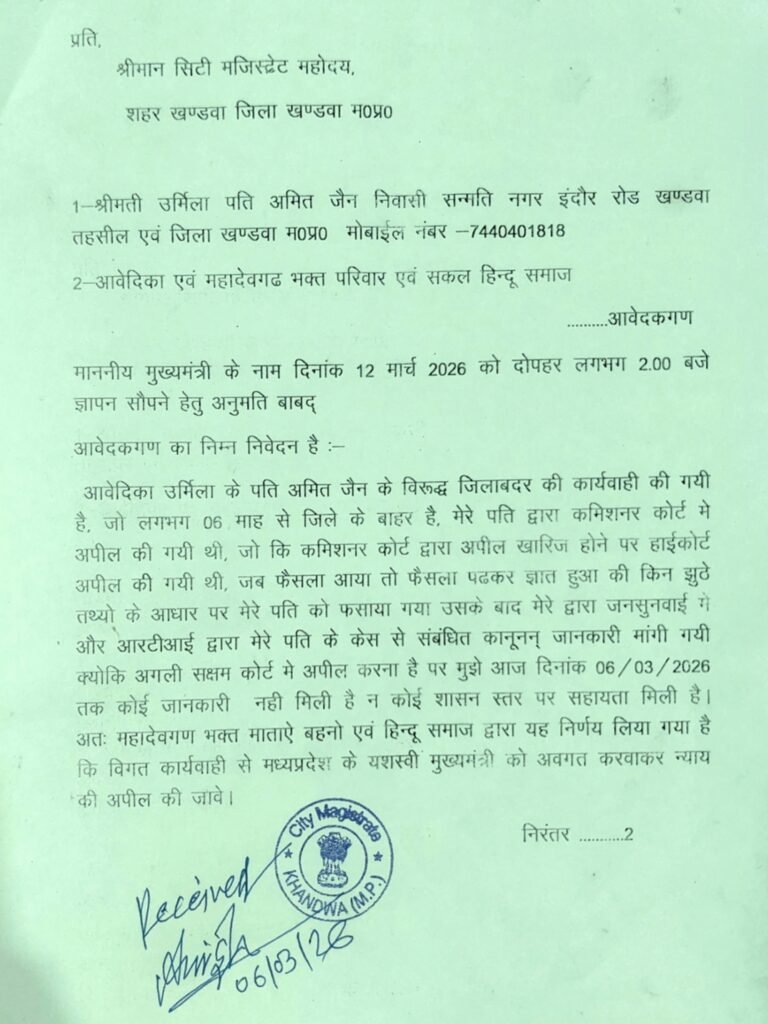 प्रति,
श्रीमान सिटी मजिस्ट्रेट महोदय,
शहर खण्डवा जिला खण्डवा म0प्र0
1–श्रीमती उर्मिला पति अमित जैन निवासी सन्मति नगर इंदौर रोड खण्डवा
तहसील एवं जिला खण्डवा म0प्र0 मोबाईल नंबर –7440401818
2–आवेदिका एवं महादेवगढ भक्त परिवार एवं सकल हिन्दू समाज
..........आवेदकगण
माननीय मुख्यमंत्री के नाम दिनांक 12 मार्च 2026 को दोपहर लगभग 2.00 बजे
ज्ञापन सौपने हेतु अनुमति बाबद्
आवेदकगण का निम्न निवेदन है :–
आवेदिका उर्मिला के पति अमित जैन के विरूद्ध जिलाबदर की कार्यवाही की गयी
है, जो लगभग 06 माह से जिले के बाहर है, मेरे पति द्वारा कमिशनर कोर्ट मे
अपील की गयी थी, जो कि कमिशनर कोर्ट द्वारा अपील खारिज होने पर हाईकोर्ट
अपील की गयी थी, जब फैसला आया तो फैसला पढकर ज्ञात हुआ की किन झुठे
तथ्यो के आधार पर मेरे पति को फसाया गया उसके बाद मेरे द्वारा जनसुनवाई मे
और आरटीआई द्वारा मेरे पति के केस से संबंधित कानूनन् जानकारी मांगी गयी
क्योकि अगली सक्षम कोर्ट मे अपील करना है पर मुझे आज दिनांक 06/03/2026
तक कोई जानकारी नही मिली है न कोई शासन स्तर पर सहायता मिली है।
अतः महादेवगण भक्त माताऐ बहनो एवं हिन्दू समाज द्वारा यह निर्णय लिया गया है
कि विगत कार्यवाही से मध्यप्रदेश के यशस्वी मुख्यमंत्री को अवगत करवाकर न्याय
की अपील की जावे।
निरंतर ...........2
City Magistrate
KHANDWA (M.P.)
Received
06/03/26